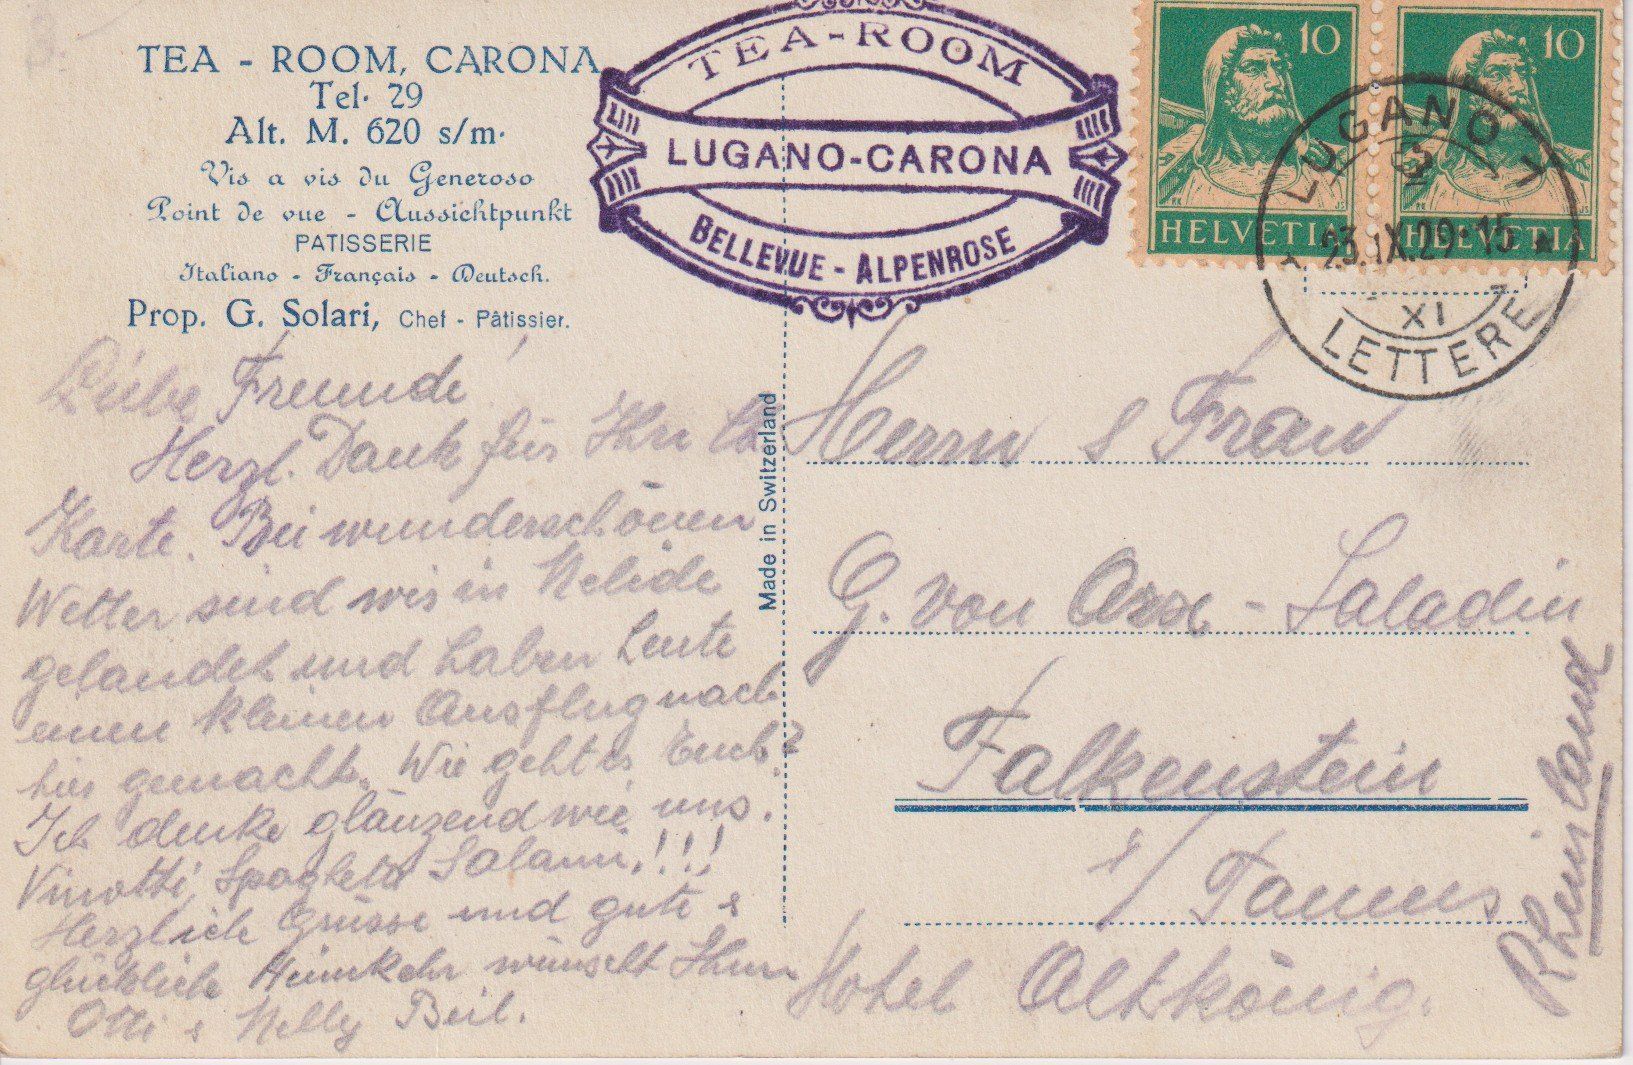 TEA - ROOM, CARONA
Tel. 29
Alt. M. 620 s/m.
Vis a vis du Generoso
Point de vue - Aussichtpunkt
PATISSERIE
Italiano - Français - Deutsch.
Prop. G. Solari, Chef - Pâtissier.
TEA-ROOM
LUGANO-CARONA
BELLEVUE - ALPENROSE
10
HELVETIA
10
HELVETIA
LUGANO 1
23.IX.29.15
XI
LETTERE
Made in Switzerland
Liebe Freunde!
Herzl. Dank für Ihre lb
Karte. Bei wunderschönen
Wetter sind wir in Melide
gelandet und haben heute
einen kleinen Ausflug nach
hier gemacht. Wie geht es Euch?
Ich denke glänzend wie uns.
Vinotti, Spaghetti Salami!!!
Herzlich Grüsse und gute &
glückliche Heimkehr wünscht Ihnen
Otti & Nelly Beil.
Herrn & Frau
G. von Arx - Saladin
Falkenstein
i/Taunus
Hotel Altkönig.
Rheinland